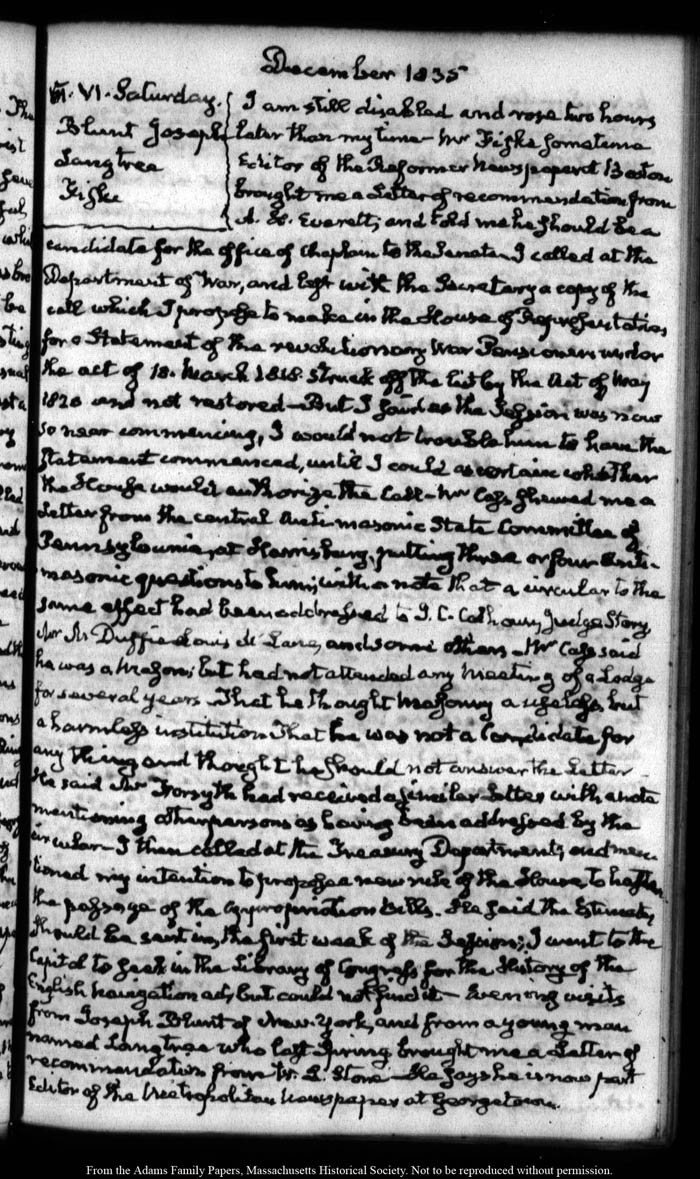 December 1835
VI. VI. Saturday.
Blunt Joseph
Langtree
Fiske
I am still disabled and rose two hours
later than my time— Mr Fiske sometime
Editor of the Reformer Newspaper at Boston
brought me a Letter of recommendation from
A. H. Everett, and told me he should be a
candidate for the office of Chaplain to the Senate— I called at the
Department of War, and left with the Secretary a copy of the
call which I propose to make in the House of Representatives,
for a Statement of the revolutionary War Pensioners under
the act of 18. March 1818. struck off the list by the Act of May
1820 and not restored— But I said as the Session was now
so near commencing, I would not trouble him to have the
statement commenced, until I could ascertain whether
the House would authorize the Call— Mr Cass shewed me a
Letter from the central Anti-masonic State Committee of
Pennsylvania, at Harrisburg, putting three or four anti-
masonic questions to him; with a note that a circular to the
same effect had been addressed to J. C. Calhoun, Judge Story,
Mr Mc Duffie Louis Mc Lane, and some others— Mr Cass said
he was a Mason; but had not attended any Meeting of a Lodge
for several years— That he thought Masonry a useless, but
a harmless institution That he was not a Candidate for
any thing and thought he should not answer the Letter—
He said Mr Forsyth had received a similar Letter with a note
mentioning other persons as having been addressed by the
circular— I then called at the Treasury Department, and men-
tioned my intention to propose a new rule of the House, to hasten
the passage of the appropriation Bills. He said the Estimates
should be sent in, the first week of the Session; I went to the
Capitol to seek in the Library of Congress for the History of the
English Navigation act, but could not find it— Evening visits
from Joseph Blunt of New-York, and from a young man
named Langtree who last Spring brought me a Letter of
recommendation from W. L. Stone— He says he is now part
Editor of the Metropolitan Newspaper at Georgetown.
From the Adams Family Papers, Massachusetts Historical Society. Not to be reproduced without permission.